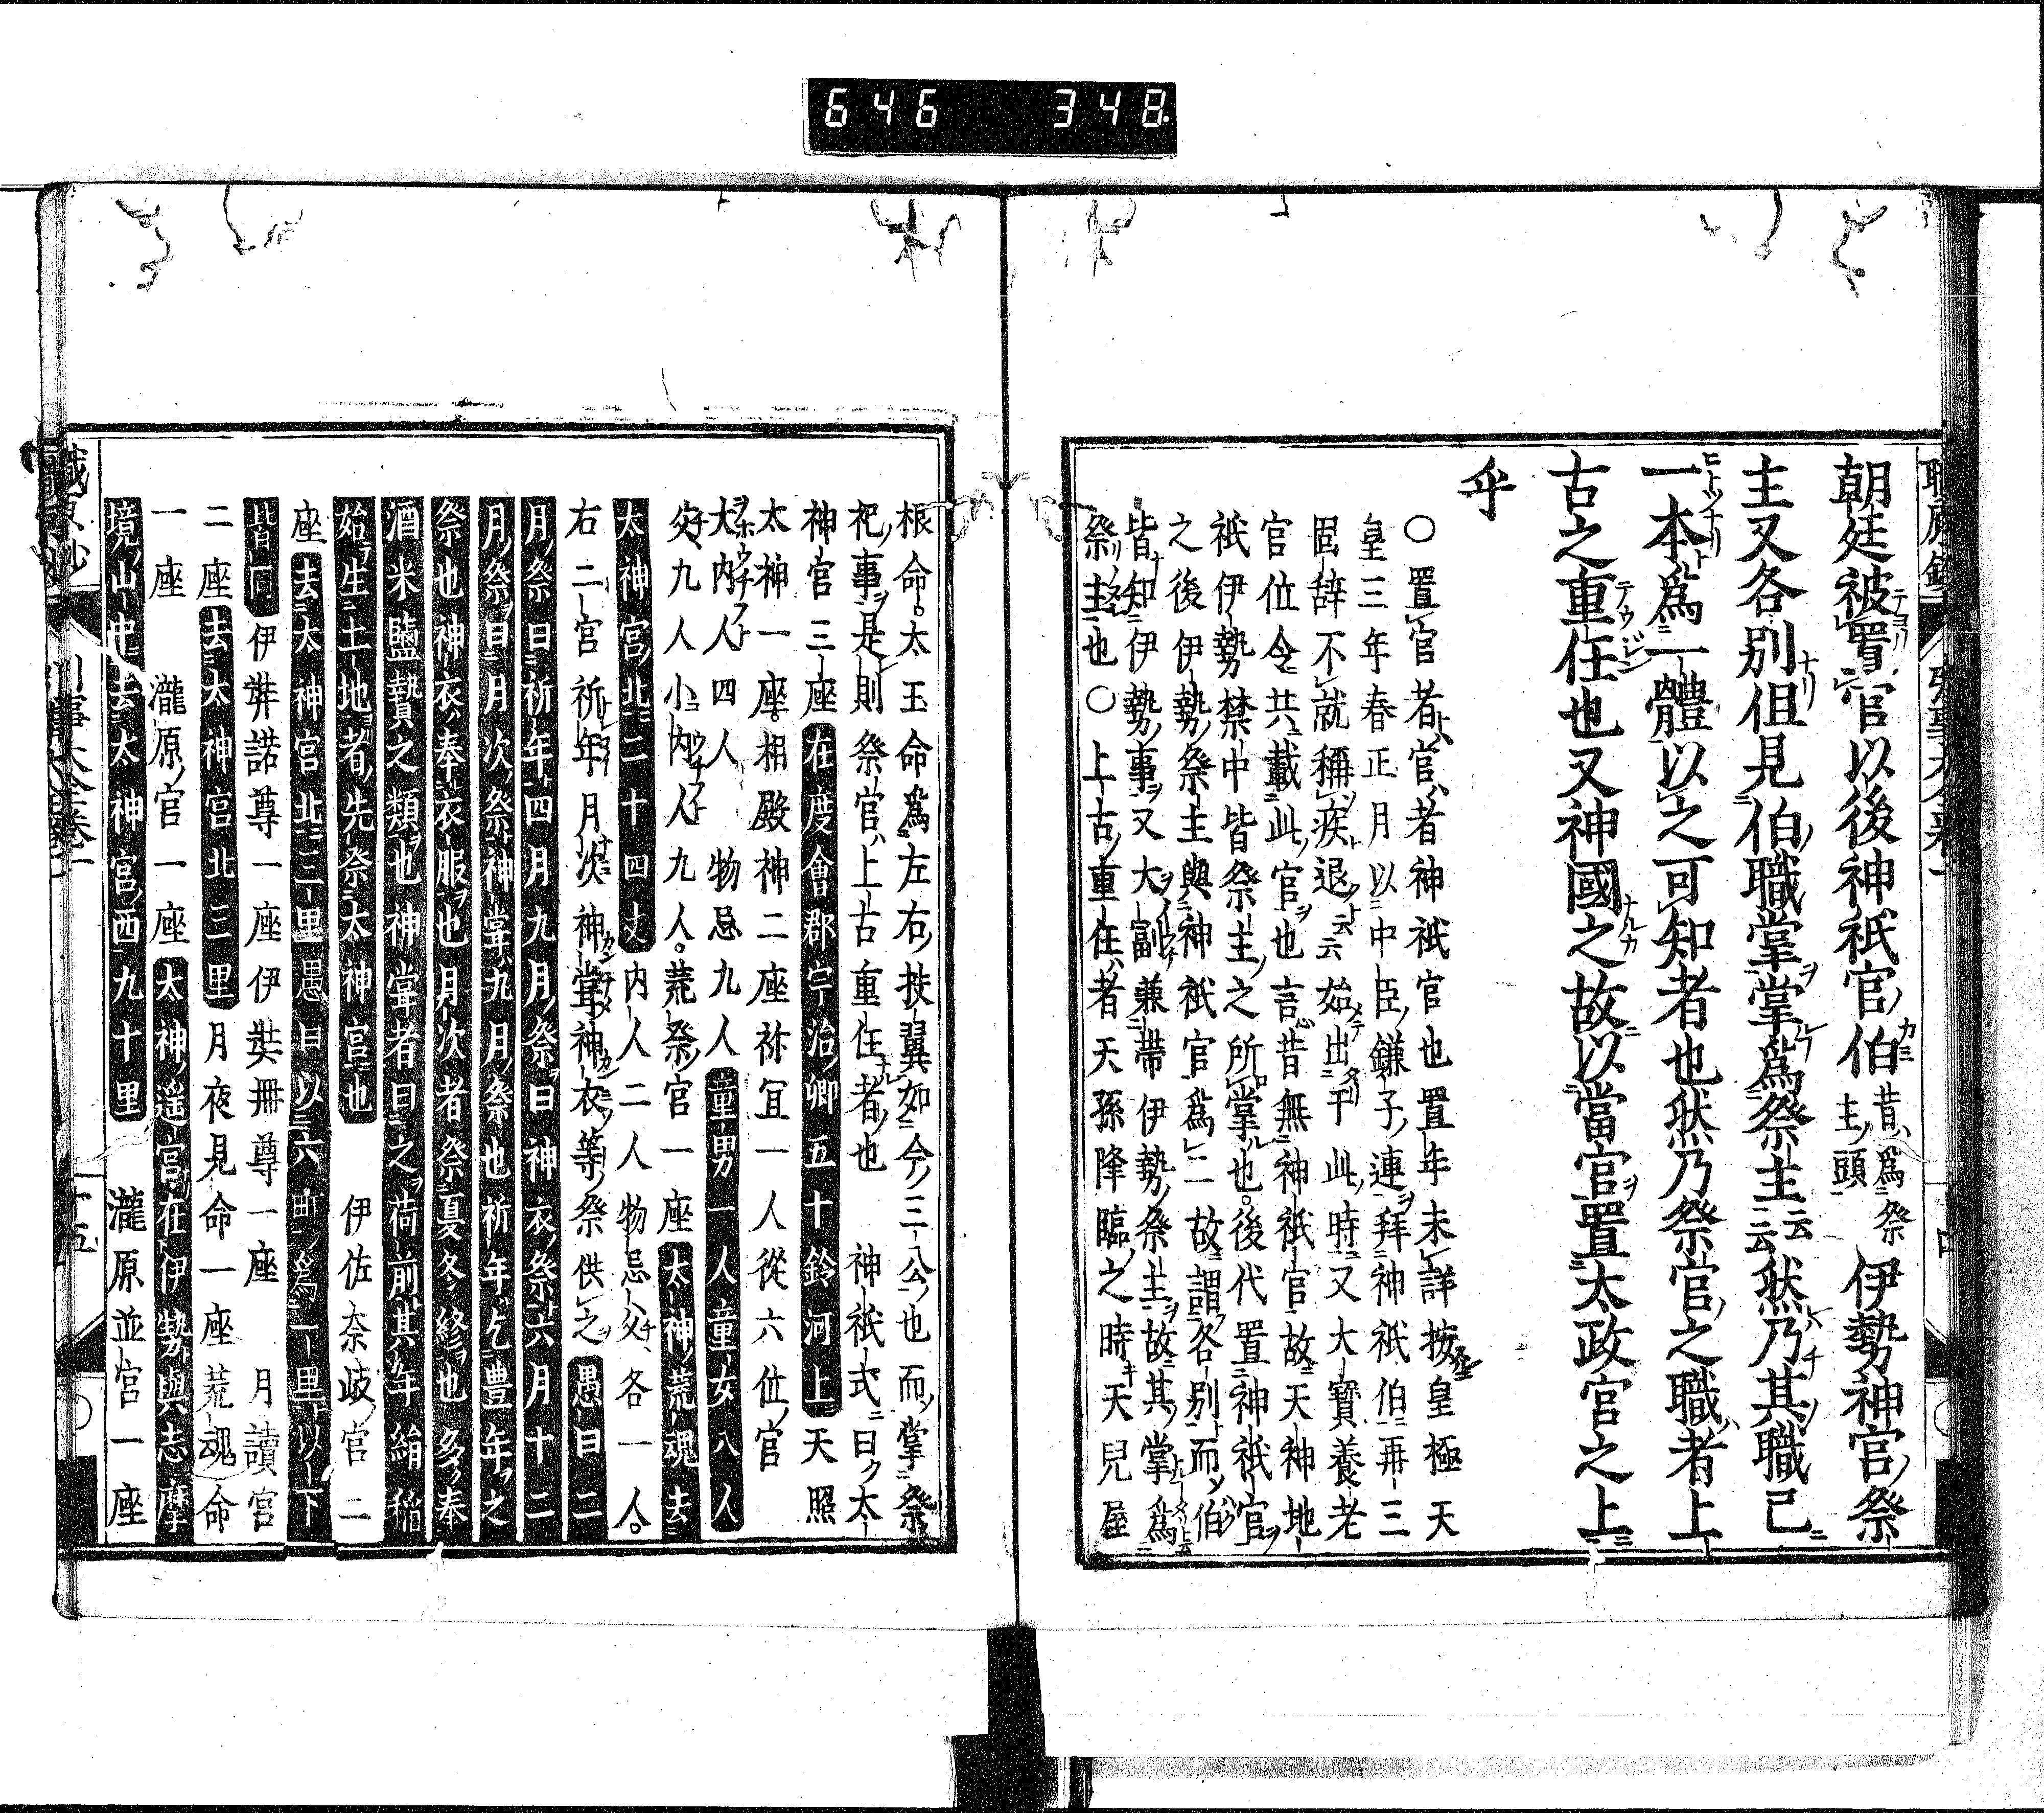 646 348
朝廷被置官以後神祇官伯昔爲祭主頭伊勢神官祭
主又各別但見伯職掌掌爲祭主云云然乃其職已
一本爲一體以之可知者也然乃祭官之職者上
古之重任也又神國之故以當官置太政官之上
乎
○置官者官者神祇官也置年未詳按皇極天
皇三年春正月以中臣鎌子連拜神祇伯再三
固辞不就稱疾退云云始出于此時又大寶養老
官位令共載此官也言昔無神祇官故天神地
祇伊勢禁中皆祭主之所掌也後代置神祇官
之後伊勢祭主與神祇官爲二故謂各別而伯
皆知伊勢事又大副兼帯伊勢祭主故其掌爲
祭主也○上古重任者天孫降臨之時天兒屋
根命太玉命爲左右扶翼如今三公也而掌祭
祀事是則祭官上古重任者也 神祇式曰太
神官三座在度會郡宇治卿五十鈴河上天照
太神一座相殿神二座祢宜一人從六位官
大内人四人物忌九人童男一人童女八人
父九人小内人九人荒祭官一座太神荒魂去
太神宮北二十四丈内人二人物忌父各一人
右二宮祈年月次神甞神衣等祭供之愚曰二
月祭曰祈年四月九月祭曰神衣祭六月十二
月祭曰月次祭神甞九月祭也祈年乞豊年之
祭也神衣奉衣服也月次者祭夏冬終也多奉
酒米鹽贄之類也神甞者曰之荷前其年絹稲
始生土地者先祭太神宮也 伊佐奈岐官二
座去太神宮北三里愚曰以六町爲一里以下
皆同伊弉諾尊一座伊弉冊尊一座 月讀宮
二座去太神宮北三里月夜見命一座荒魂命
一座 瀧原官一座太神遥宮在伊勢與志摩
境山中去太神宮西九十里 瀧原並宮一座